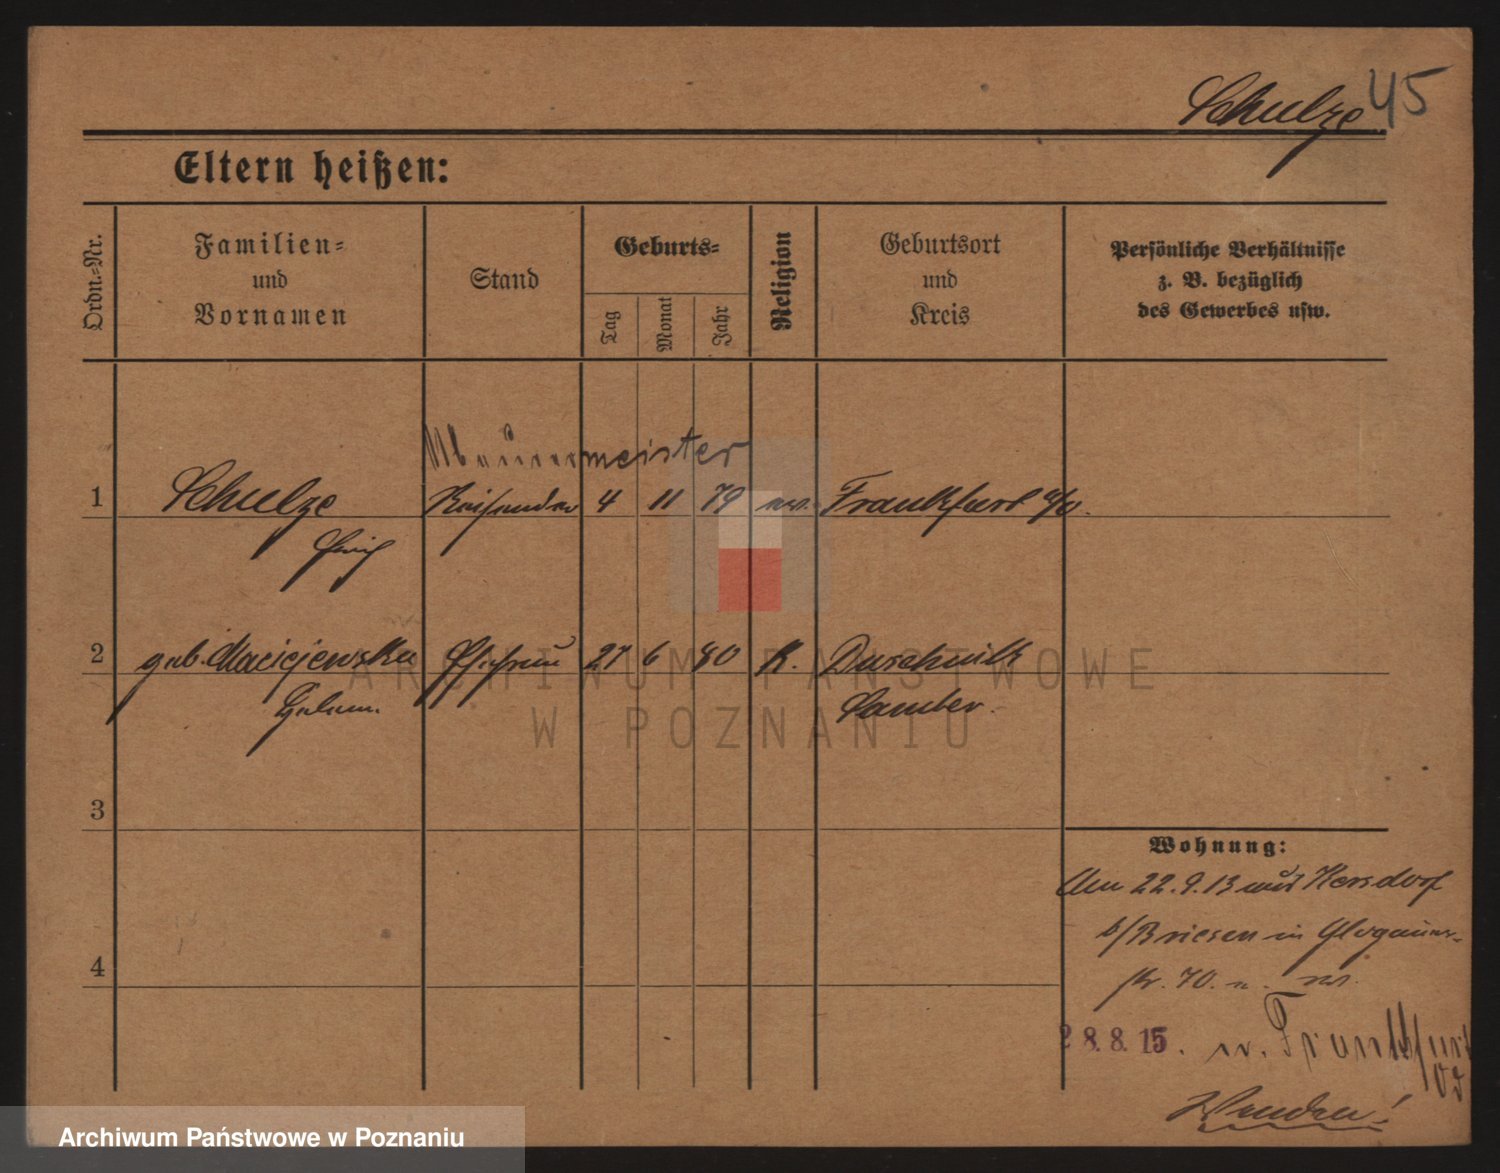 Schulze 45
Eltern heißen:
Ordn.-Nr.
Familien-
und
Vornamen
Stand
Geburts-
Tag
Monat
Jahr
Religion
Geburtsort
und
Kreis
Persönliche Verhältnisse
z. B. bezüglich
des Gewerbes usw.
Maurermeister
1 Schulze Reisender 4 11 79 ev. Frankfurt a/O.
2 geb. Maciejewska Ehefrau 27 6 80 K. Duschnik
Samter.
3
4
Wohnung:
Am 22.9.13 aus Kersdorf
b/Briesen in Glogauer-
str. 70.
28.8.15. n. Frankfurt
Wenden!
ARCHIWUM PAŃSTWOWE
W POZNANIU
Archiwum Państwowe w Poznaniu